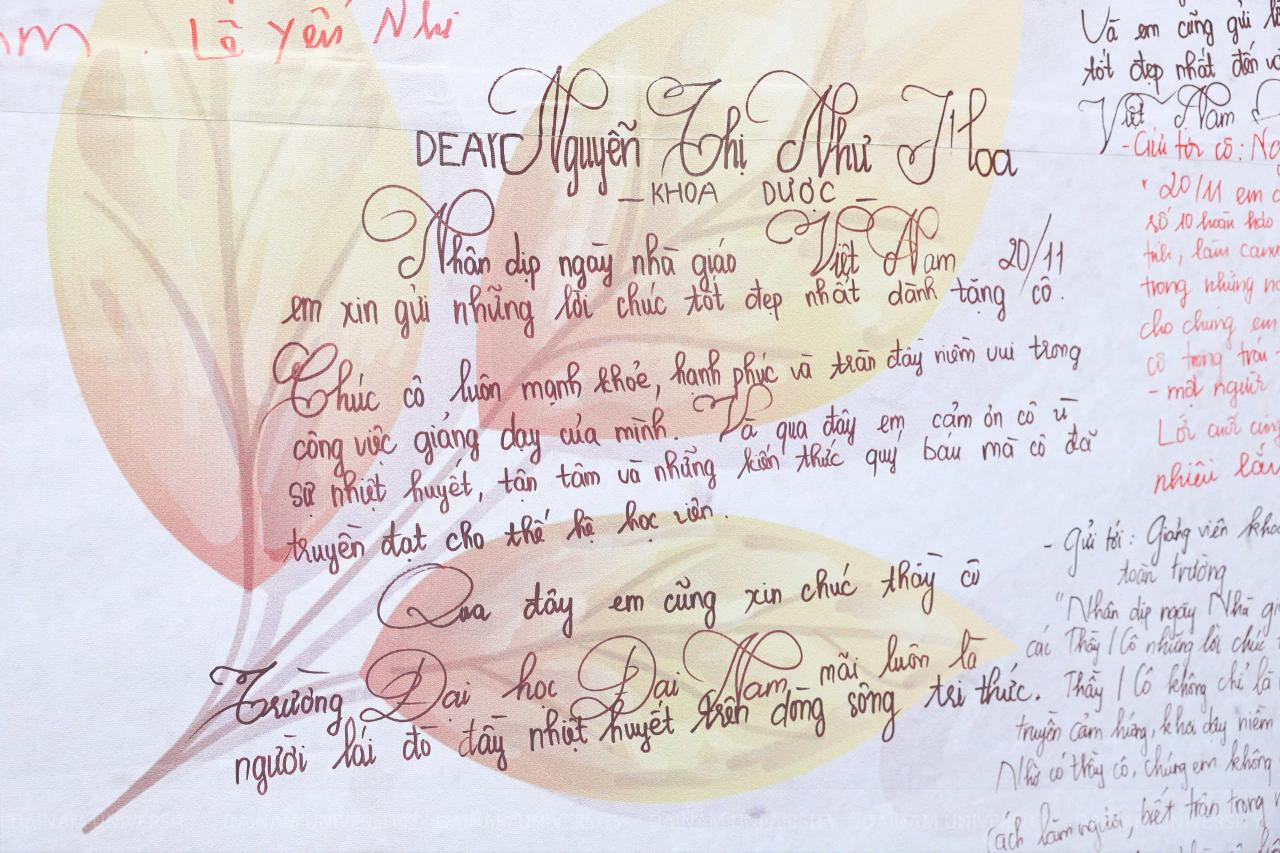 Lê Yến Nhi
DEAR Nguyễn Thị Như Hoa
— KHOA DƯỢC —
Nhân dịp ngày nhà giáo Việt Nam 20/11
em xin gửi những lời chúc tốt đẹp nhất dành tặng cô.
Chúc cô luôn mạnh khoẻ, hạnh phúc và tràn đầy niềm vui trong
công việc giảng dạy của mình. Và qua đây em cảm ơn cô vì
sự nhiệt huyết, tận tâm và những kiến thức quý báu mà cô đã
truyền đạt cho thế hệ học viên.
Qua đây em cũng xin chúc thầy cô
Trường Đại học Đại Nam mãi luôn là
người lái đò đầy nhiệt huyết trên dòng sông tri thức.
Và em cũng gửi
tốt đẹp nhất đến
Việt Nam
- Gửi tới cô:
" 20/11 em
số 10 hoàn hảo
trong những
cho chúng em
cô trong
- một người
Lời cuối
nhiều lắm
- Gửi tới: Giảng viên
toàn trường
"Nhân dịp ngày Nhà
các Thầy / Cô những lời chúc
Thầy / Cô không chỉ là
truyền cảm hứng, khơi dậy niềm
Nhờ có thầy cô, chúng em không
cách làm người, biết trân trọng
DAINAM UNIVERSITY DAINAM UNIVERSITY DAINAM UNIVERSITY DAINAM UNIVERSITY DAINAM UNIVERSITY